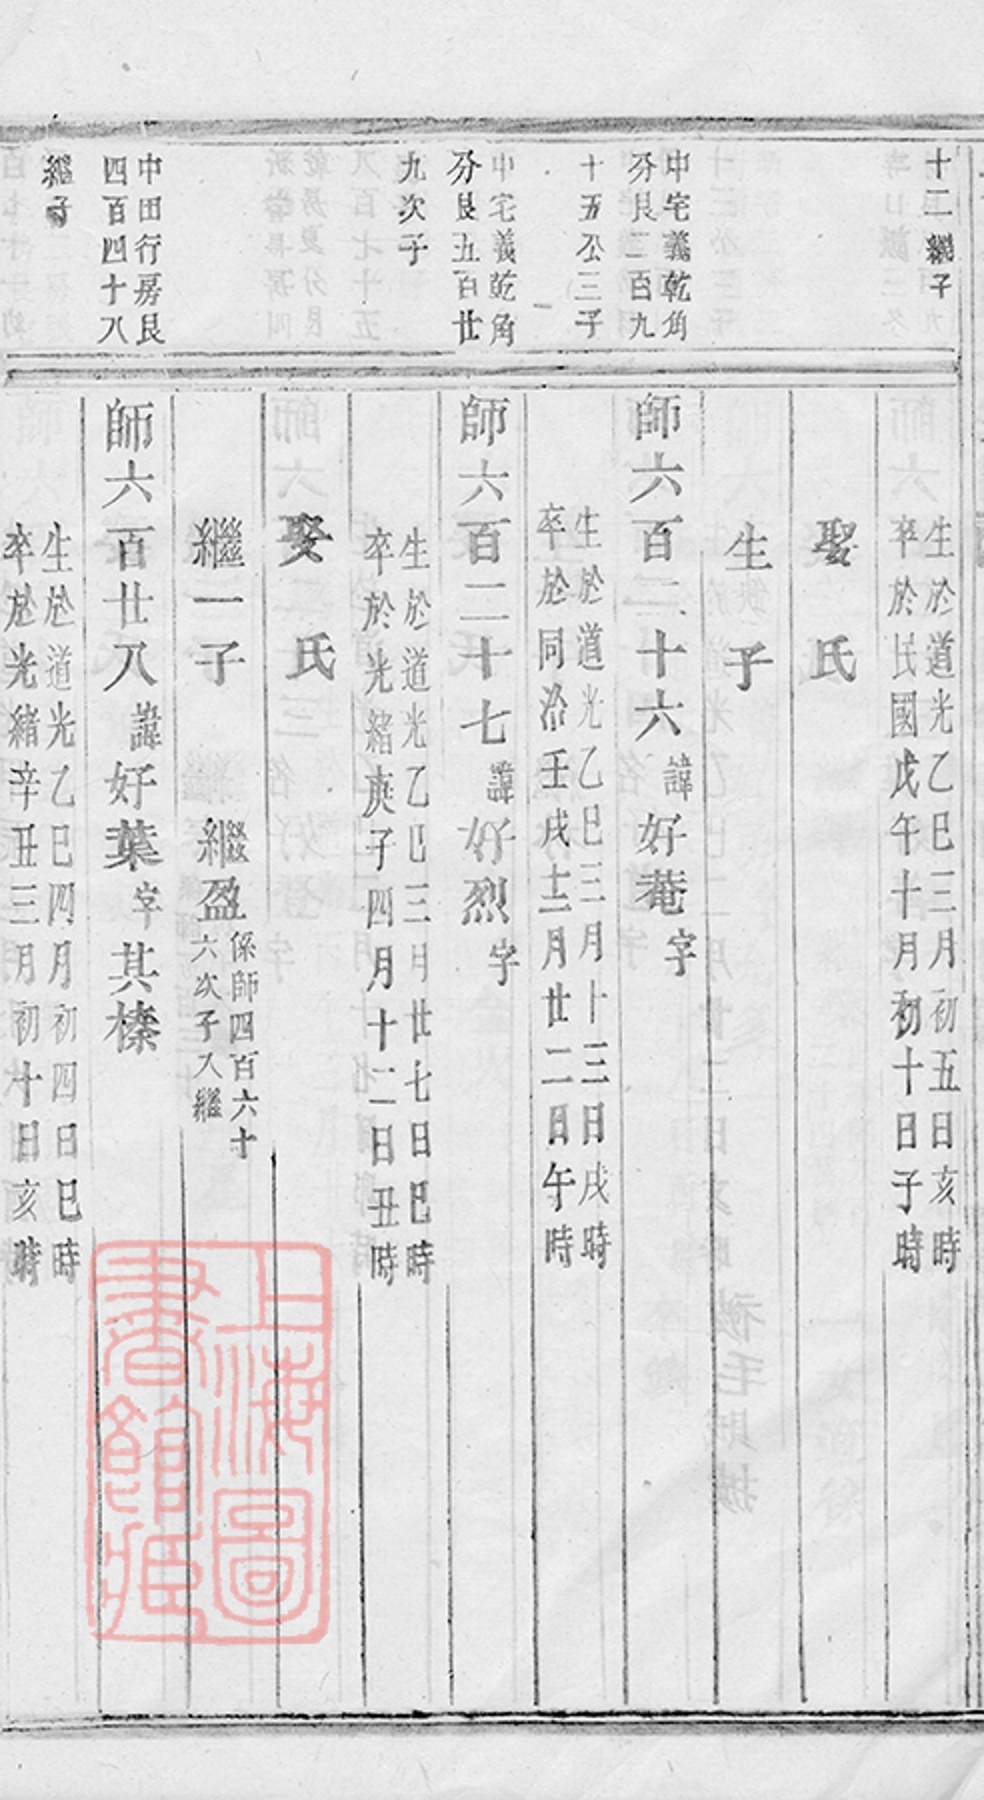 十二繼子
生於道光乙巳三月初五日亥時
卒於民國戊午十月初十日子時
娶 氏
生 子
中宅義乾角
分艮二百九
十五公三子
師六百二十六諱好菴字
生於道光乙巳三月十三日戌時
卒於同治壬戌十二月廿二日午時
中宅義乾角
分艮五百廿
九次子
師六百二十七諱好烈字
生於道光乙巳三月廿七日巳時
卒於光緒庚子四月十二日丑時
娶 氏
繼一子 繼盈係師四百六十
六次子入繼
中田行房艮
四百四十八
繼子
師六百廿八諱好葉字其榛
生於道光乙巳四月初四日巳時
卒於光緒辛丑三月初十日亥時
上海圖
書館藏